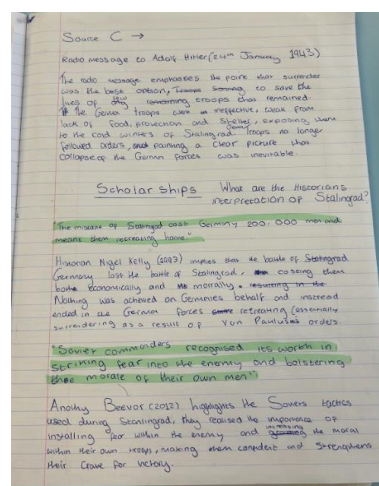 Source C →
Radio message to Adolf Hitler (24th January 1943)
The radio message emphasises the point that surrender
was the best option, to save the
lives of troops that remained.
the German troops were ineffective, weak from
lack of food, protection and shelter, exposing them
to the cold winters of Stalingrad. German troops no longer
followed orders, painting a clear picture that
collapse of the German forces was inevitable.
Scholar ships What are the Historians
interpretation of Stalingrad?
"The mistake of Stalingrad cost Germany 200,000 men and
means them retreating home."
Historian Nigel Kelly implies that the battle of Stalingrad
Germany lost the battle of Stalingrad, costing them
both economically and morally.
Nothing was achieved on Germanies behalf and instead
ended in the German forces retreating (essentially
surrendering as a result of Von Paulus's orders
"Soviet commanders recognised its worth in
striking fear into the enemy and bolstering
the morale of their own men"
Anothy Beevor (2012) highlights the Soviets tactics
used during Stanlingrad, they realised the importance of
installing fear within the enemy and increasing the moral
within their own troops, making them confident and strengthens
their crave for victory.